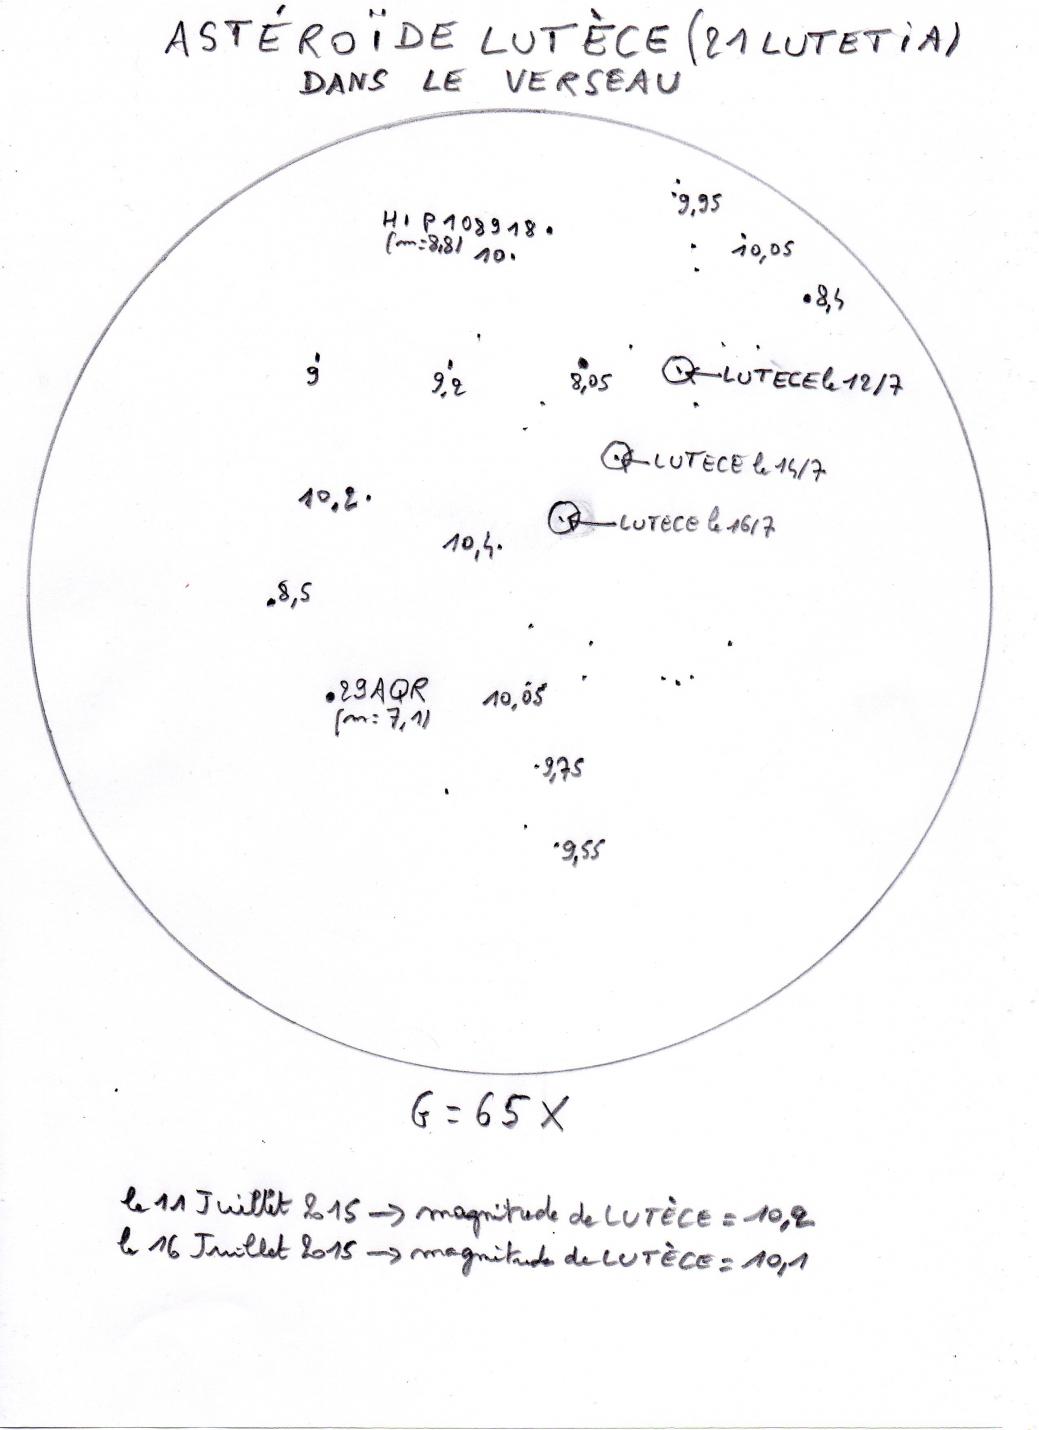 ASTÉROÏDE LUTÈCE (21 LUTETiA)
DANS LE VERSEAU
9,95
HIP108918
(m=8,8)
10
10,05
8,4
9
9,2
8,05
LUTECE le 12/7
LUTECE le 14/7
10,2
LUTECE le 16/7
10,4
8,5
29AQR
(m=7,1)
10,05
9,75
9,55
G=65X
le 11 Juillet 2015 → magnitude de LUTÈCE = 10,2
le 16 Juillet 2015 → magnitude de LUTÈCE = 10,1